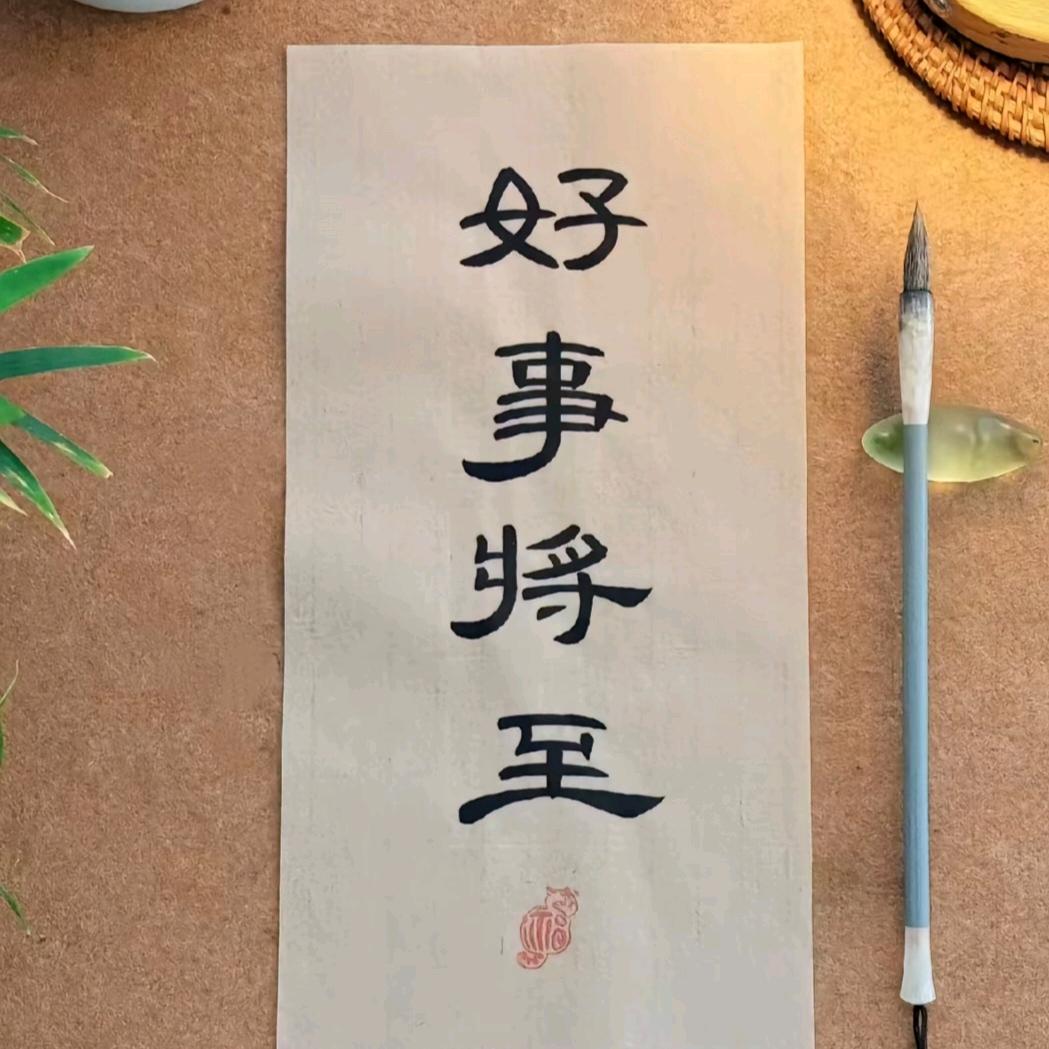 好事將至